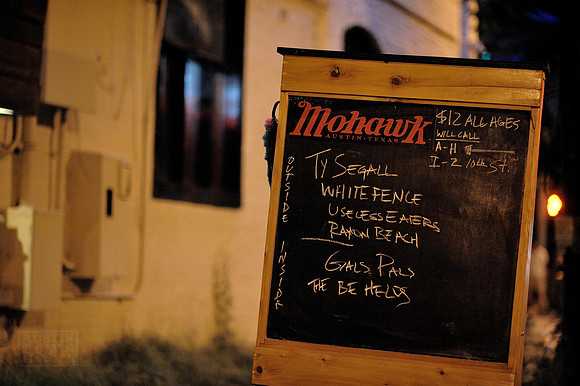 Mohawk
AUSTIN·TEXAS
$12 ALL AGES
WILL CALL
A-H
I-Z 10th ST.
OUTSIDE
TY SEGALL
WHITE FENCE
USELESS EATERS
RAYON BEACH
INSIDE
GALS PALS
THE BE HELDS